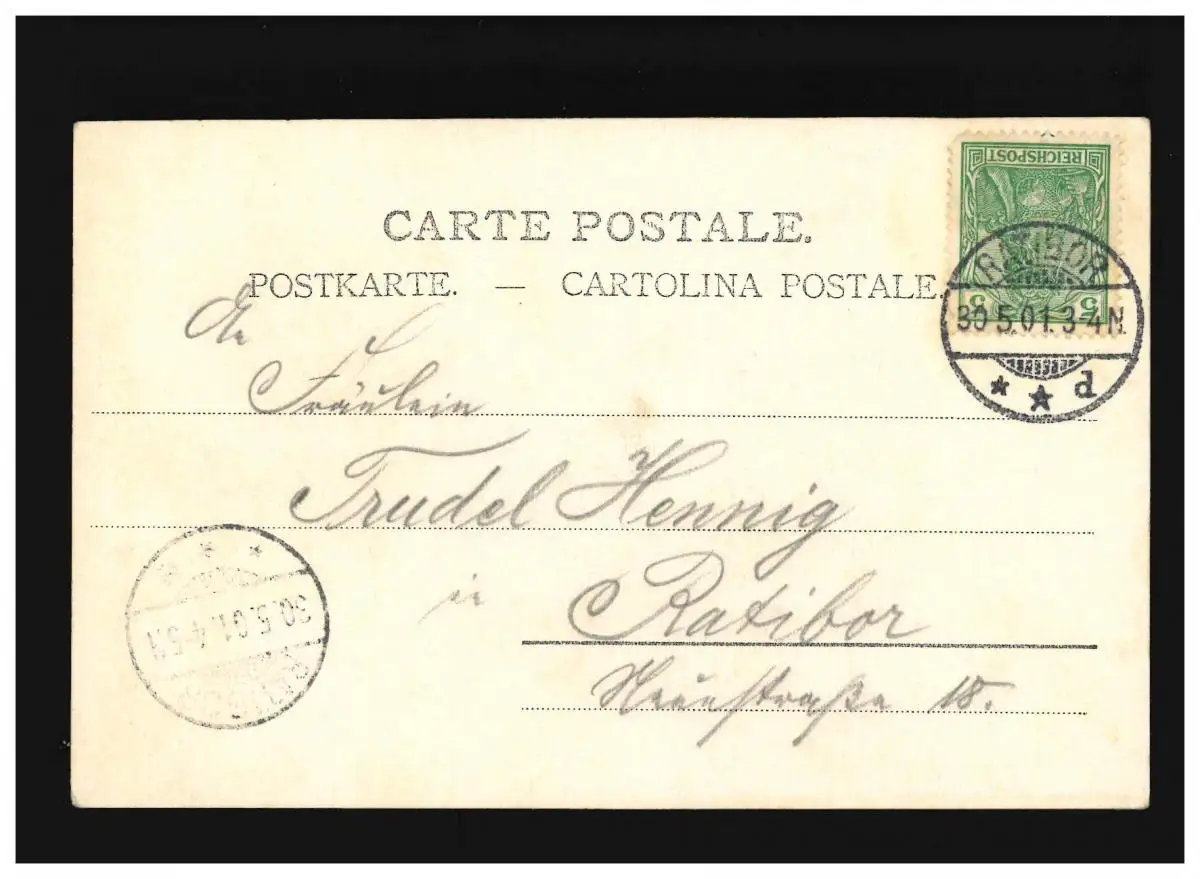 CARTE POSTALE.
POSTKARTE. — CARTOLINA POSTALE.
REICHSPOST
5 5
RATIBOR
30.5.01.3-4N.
* * d
An
Fräulein
Trudel Hennig
in Ratibor
Neuestraße 18.
30.5.01.4-5N